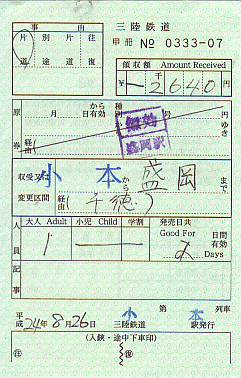 事由
片道 別途 片道 往復
三陸鉄道
甲冊 № 0333-07
領収額 Amount Received
¥ 千 2640円
原券
から 種
月 日有効
ゆき
経由
無効
盛岡駅
収受又は変更区間
小本 から 盛岡 まで
経由 (千徳)
人員
大人 Adult 小児 Child 学割
1
発売日共 Good For 2 日間有効 Days
記事
小 第 列車
平成 24年8月26日 三陸鉄道 本 駅発行
(入鋏・途中下車印)